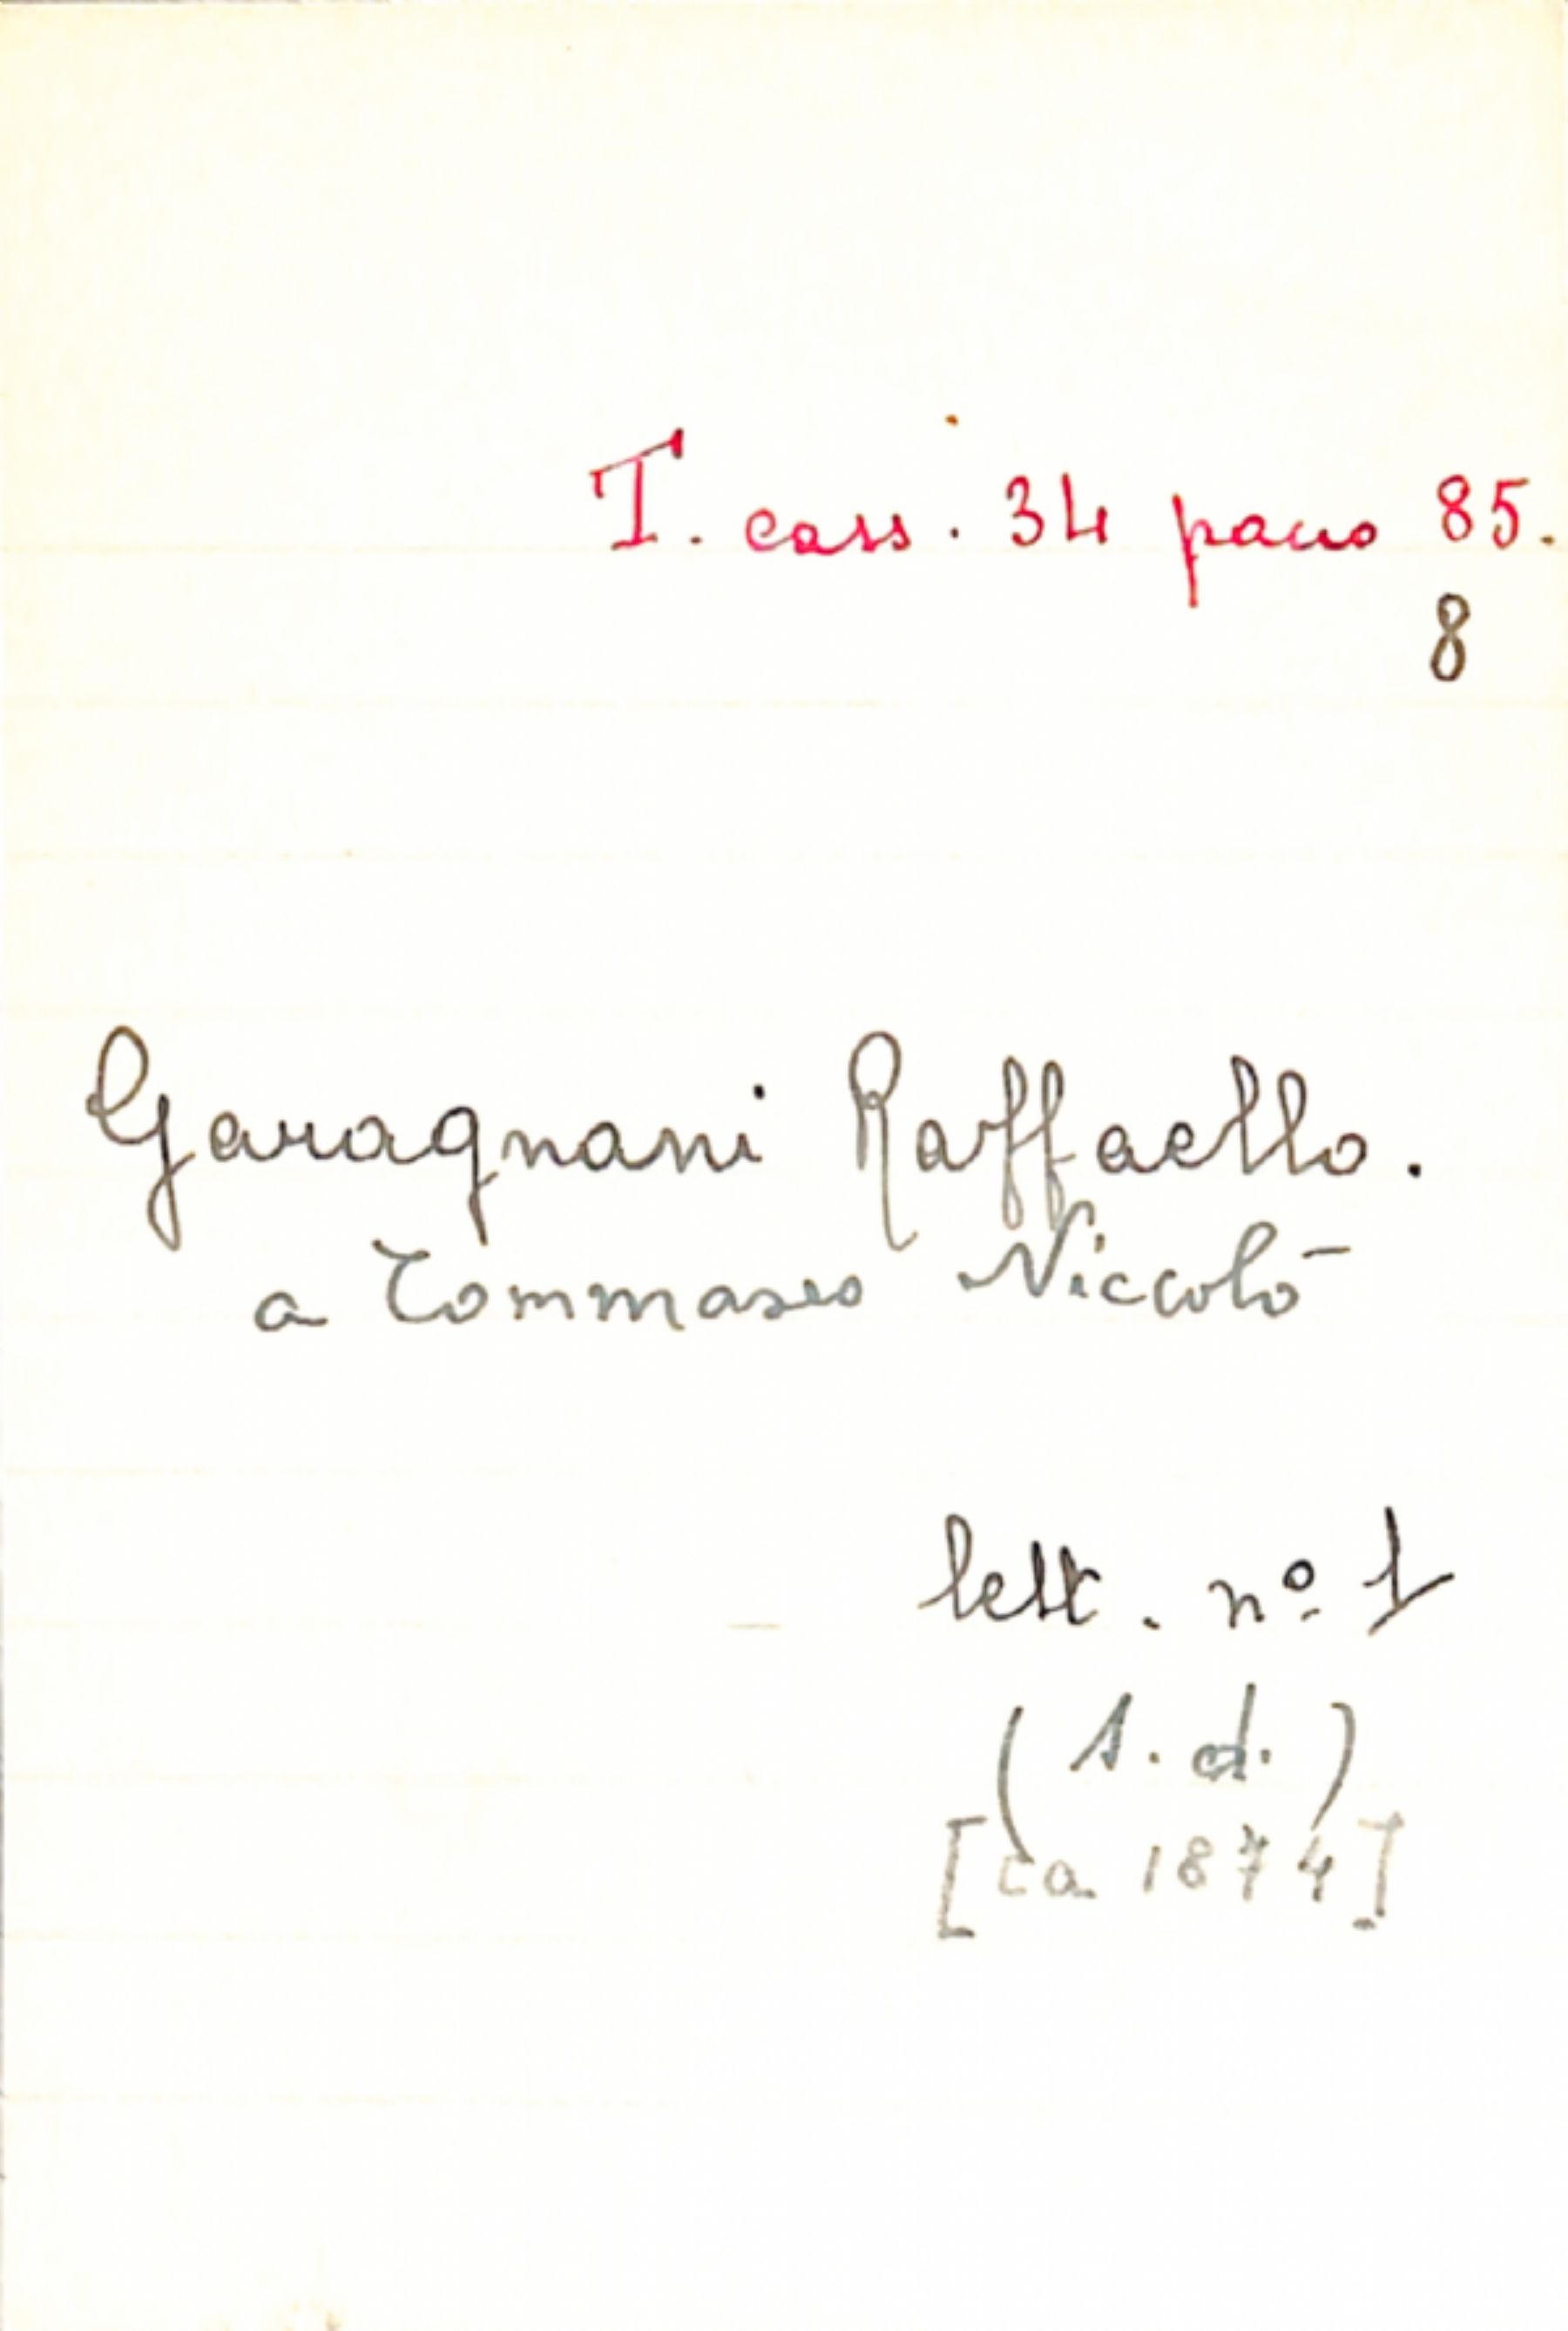 T. cass. 34 pacco 85.
8
Garagnani Raffaello.
a Tommaseo Niccolò
lett. nº 1
(s. d.)
[ca 1874]